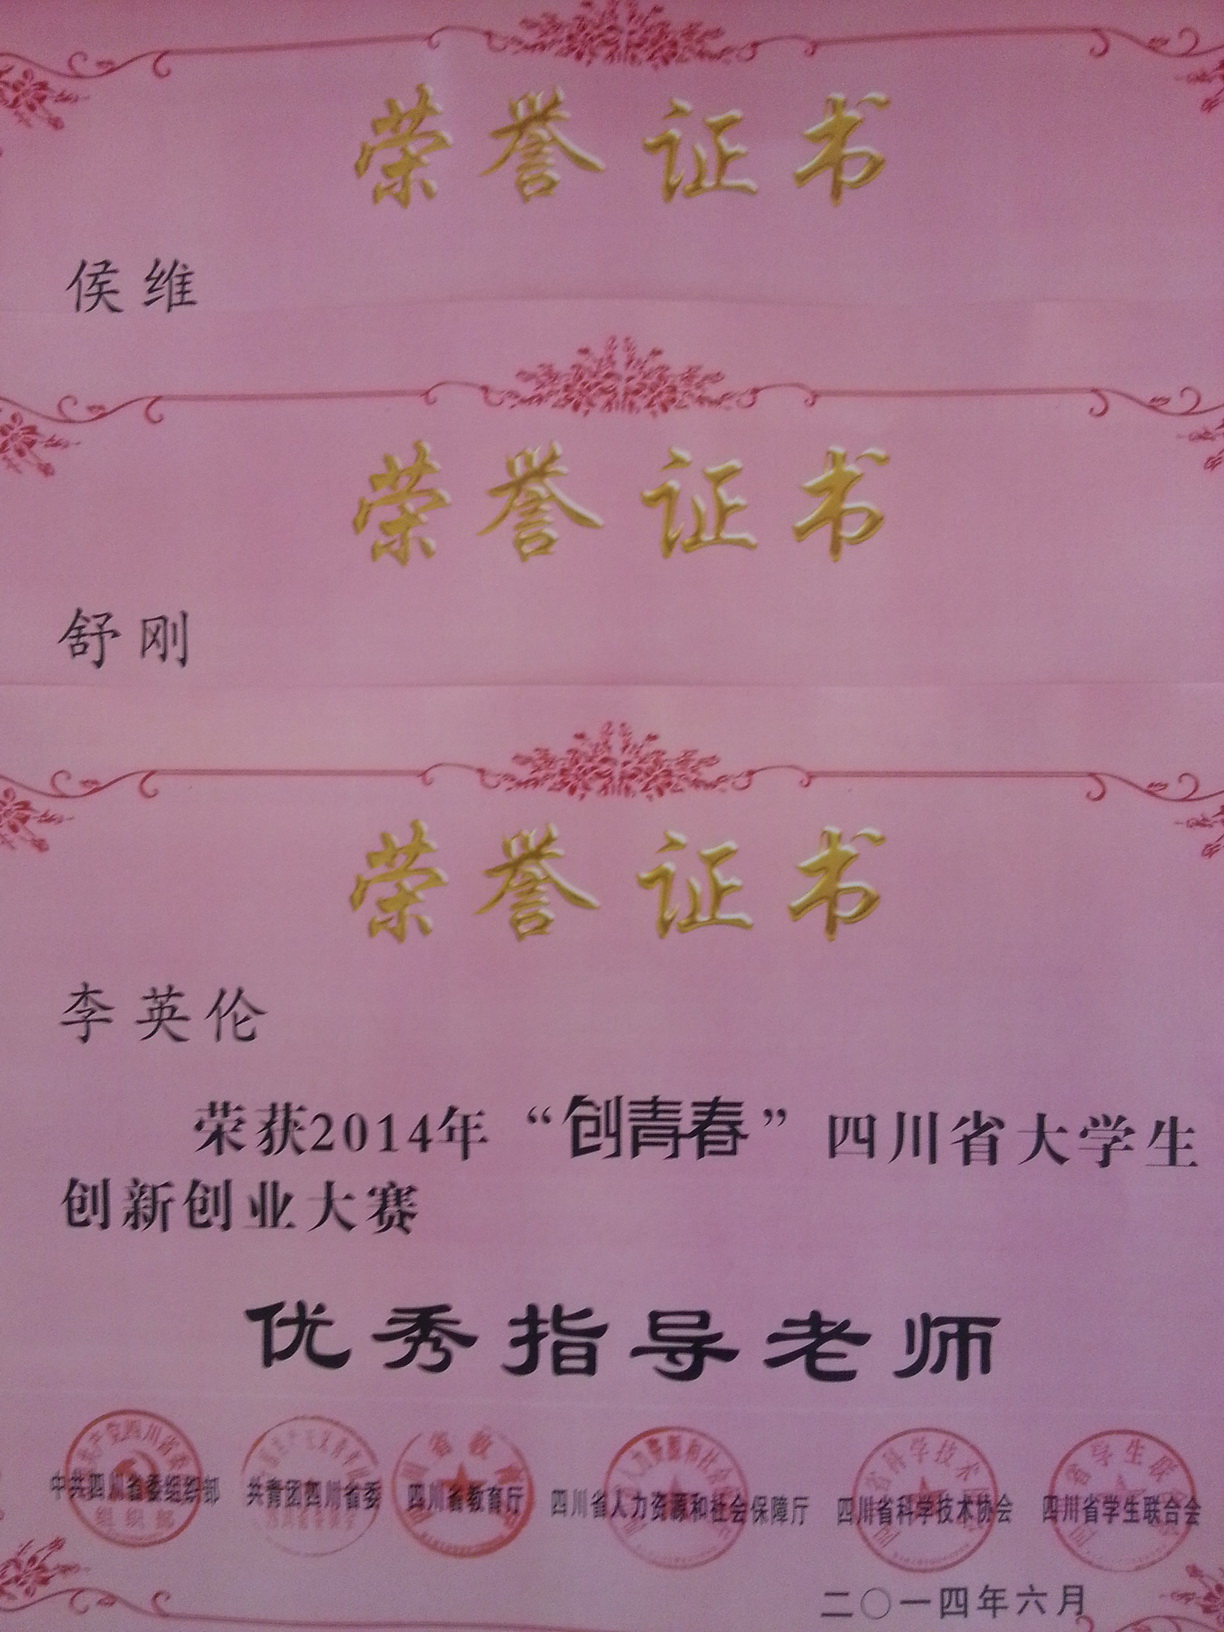 荣誉证书
侯维
荣誉证书
舒刚
荣誉证书
李英伦
荣获2014年“创青春”四川省大学生
创新创业大赛
优秀指导老师
中共四川省委组织部 共青团四川省委 四川省教育厅 四川省人力资源和社会保障厅 四川省科学技术协会 四川省学生联合会
二〇一四年六月